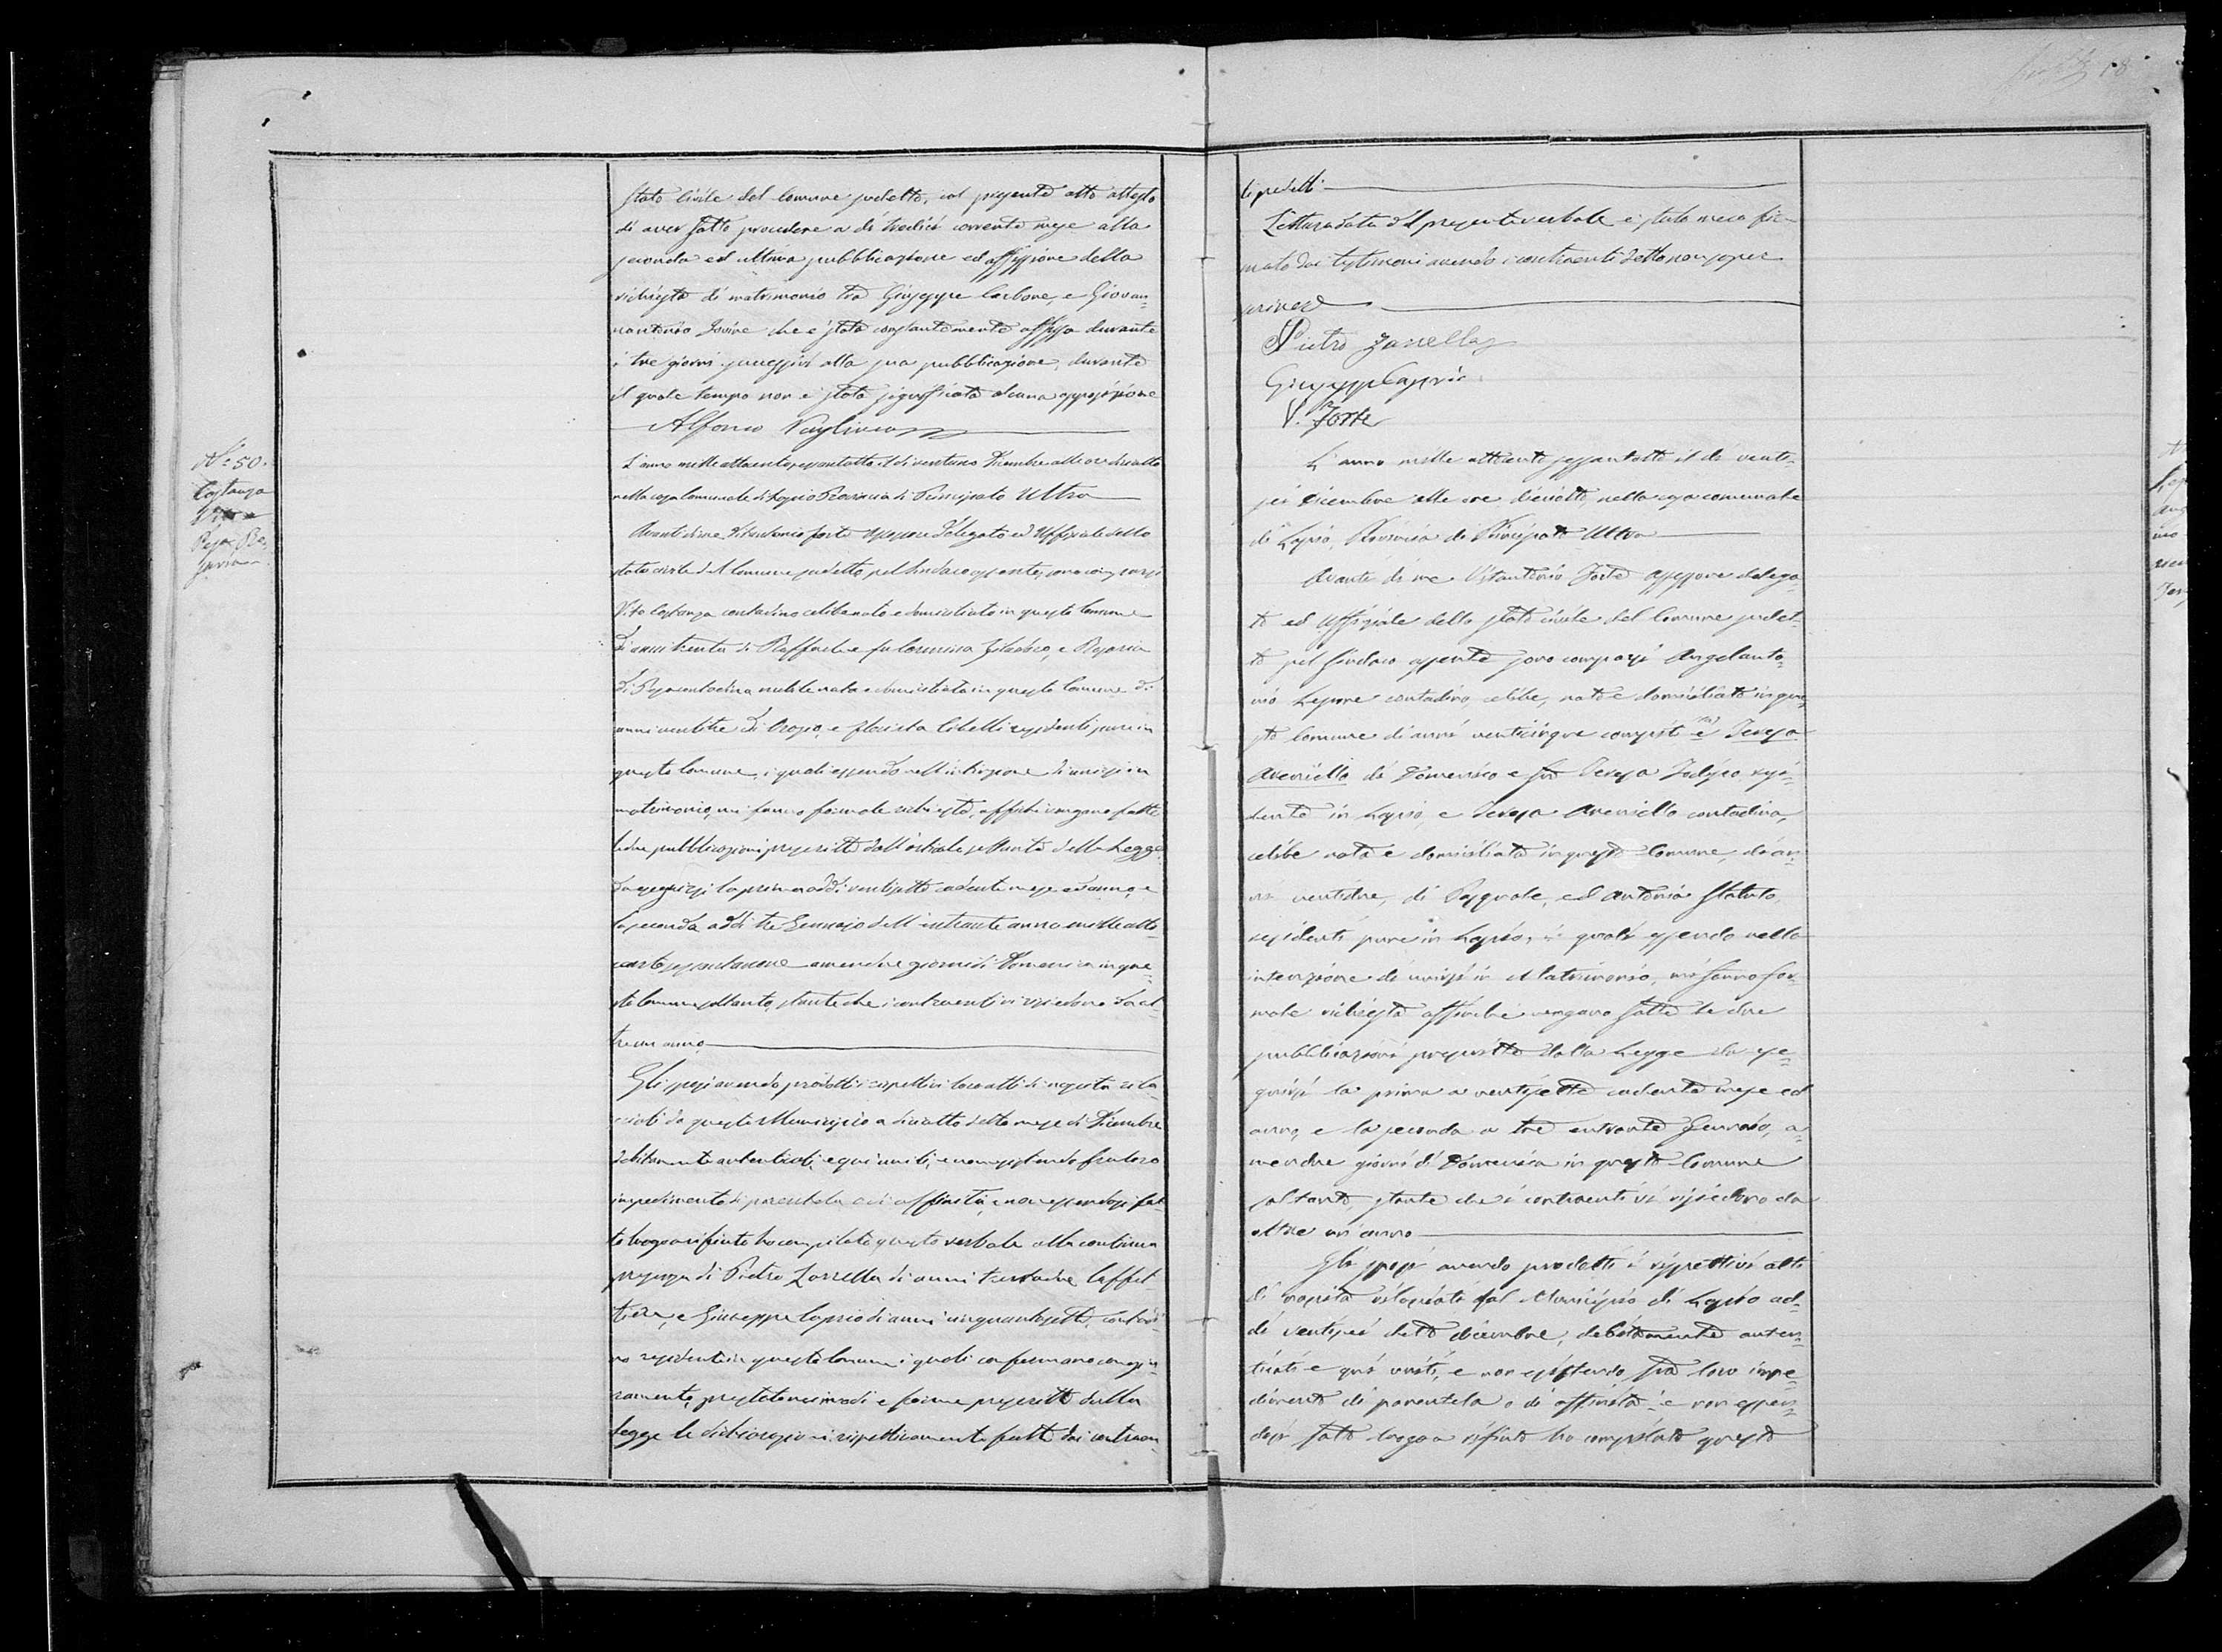 N.° 50.
Costanza
Vito e
Rosa
stato Civile del Comune sudetto, col presente atto attesto
di aver fatto procedere a dì tredici corrente mese alla
seconda ed ultima pubblicazione ed affissione della
richiesta di matrimonio tra Giuseppe Carbone, e Giovan=
nantonia Iovine che è stata constantemente affissa durante
i tre giorni successivi alla sua pubblicazione, durante
il quale tempo non è stata significata alcuna opposizione
Alfonso
L'anno mille ottocento sessantotto il dì ventuno Dicembre alle ore dieciotto
nella casa Comunale di Lapio Provincia di Principato Ultra
Avanti di me Vitantonio Forte Assessore delegato ed Uffiziale dello
stato civile del Comune sudetto, pel Sindaco assente, sono comparsi
Vito Costanza contadino celibe nato e domiciliato in questo Comune
di anni trenta di Raffaele e fu Carmina, e Rosaria
di Rosa contadina nubile nata e domiciliata in questo Comune di
anni ventitre di Orazio, e Florinda Ciletti residenti pure in
questo Comune, i quali essendo nell'intenzione di unirsi in
matrimonio, mi fanno formale richiesta, affinchè vengano fatte
le due pubblicazioni prescritte dall'articolo settanta della Legge
da eseguirsi la prima addì ventisette cadente mese ed anno, e
la seconda addì tre Gennajo dell'entrante anno mille otto=
cento sessantanove amendue giorni di Domenica in que=
sto Comune soltanto, stante che i contraenti vi risiedono da ol=
tre un anno
Gli sposi avendo prodotti i rispettivi loro atti di nascita rila=
sciati da questo Municipio a dieciotto detto mese di Dicembre
debitamente autenticati, e qui uniti, e non esistendo fra loro
impedimento di parentela o di affinità, e non essendosi fat=
to luogo a rifiuto ho compilato questo verbale alla continua
presenza di Pietro Zarrella di anni trentadue Caffet=
tiere, e Giuseppe Caprio di anni cinquantasette, contadi=
no residenti in questo Comune i quali confermano con giu=
ramento, prestato nei modi e forme prescritte dalla
Legge le dichiarazioni rispettivamente fatte dai contraen=
ti predetti
Lettura data del presente verbale è stato meco fir=
mato dai testimoni avendo i contraenti detto non saper
scrivere
Pietro Zarrella
Giuseppe Caprio
V. Forte
L'anno mille ottocento sessantotto il dì venti=
sei Dicembre alle ore dieciotto, nella casa comunale
di Lapio, Provincia di Principato Ultra
Avanti di me Vitantonio Forte assessore delega=
to ed Uffiziale dello stato civile del Comune sudet=
to pel Sindaco assente sono comparsi Angelanto=
nio Lepore contadino, celibe, nato e domiciliato in que=
sto Comune di anni venticinque compiti e Teresa
Aveniello di Domenico e fu Teresa resi=
dente in Lapio, e Teresa Aveniello contadina,
celibe nata e domiciliata in questo Comune, di an=
ni ventidue, di Pasquale, ed Antonia Statuto,
residenti pure in Lapio, i quali essendo nella
intenzione di unirsi in Matrimonio, mi fanno for=
male richiesta affinchè vengano fatte le due
pubblicazioni prescritte dalla Legge da ese=
guirsi la prima a ventisette cadente mese ed
anno, e la seconda a tre entrante Gennaio, a=
mendue giorni di Domenica in questo Comune
soltanto, stante che i contraenti vi risiedono da
oltre un anno
Gli sposi avendo prodotti i rispettivi atti
di nascita rilasciati dal Municipio di Lapio ad=
dì ventisei detto dicembre, debitamente auten=
ticati e quì uniti, e non esistendo fra loro impe=
dimento di parentela o di affinità, e non essen=
dosi fatto luogo a rifiuto ho compilato questo